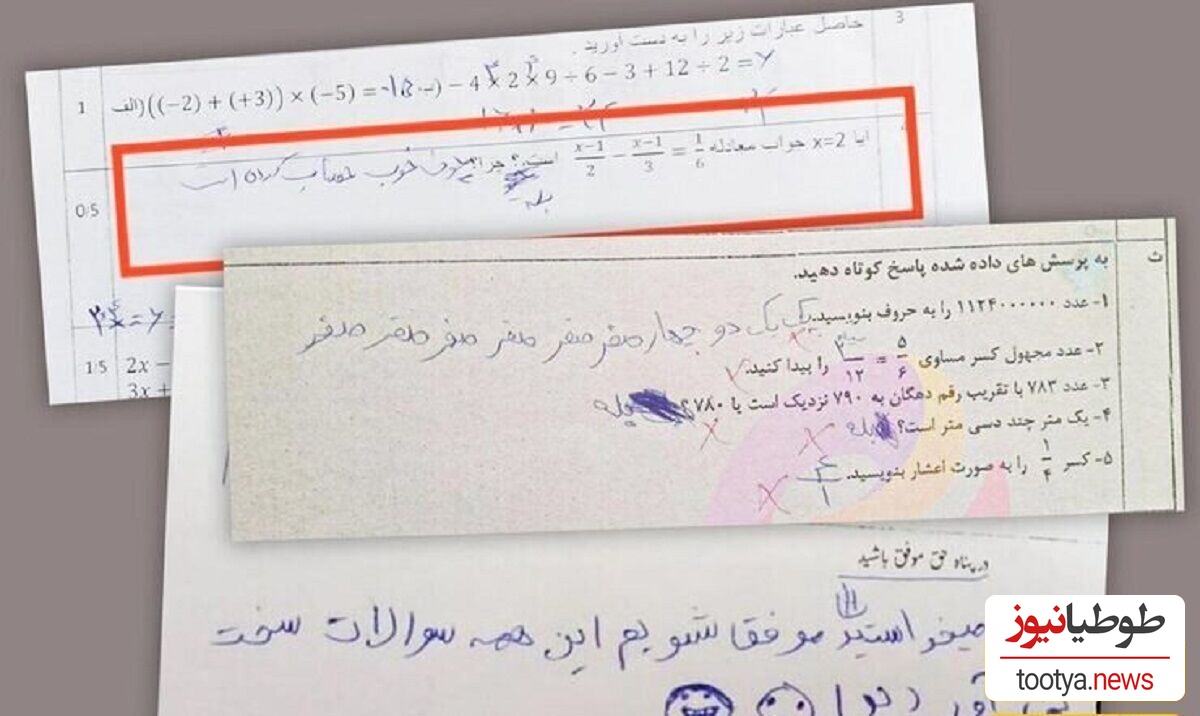 3
حاصل عبارات زیر را به دست آورید .
1
الف) ((−2) + (+3)) × (−5) =
− 4 × 2 × 9 ÷ 6 − 3 + 12 ÷ 2 =
0/5
آیا x=2 جواب معادله x−1/2 − x−1/3 = 1/6 است؟ چرا؟
خوب حساب کرده است
بله
1/5
2x −
3x +
ث
به پرسش های داده شده پاسخ کوتاه دهید.
۱- عدد ۱۱۲۴۰۰۰۰۰۰ را به حروف بنویسید.
یک یک دو چهار صفر صفر صفر صفر صفر صفر
۲- عدد مجهول کسر مساوی ۵/۶ = /۱۲ را پیدا کنید.
۳- عدد ۷۸۳ با تقریب رقم دهگان به ۷۹۰ نزدیک است یا ۷۸۰؟ بله
۴- یک متر چند دسی متر است؟ بله
۵- کسر ۱/۴ را به صورت اعشار بنویسید. ۴/۱
در پناه حق موفق باشید
میخواستید موفقا شویم این همه سوالات سخت
طوطیانیوز
tootya.news